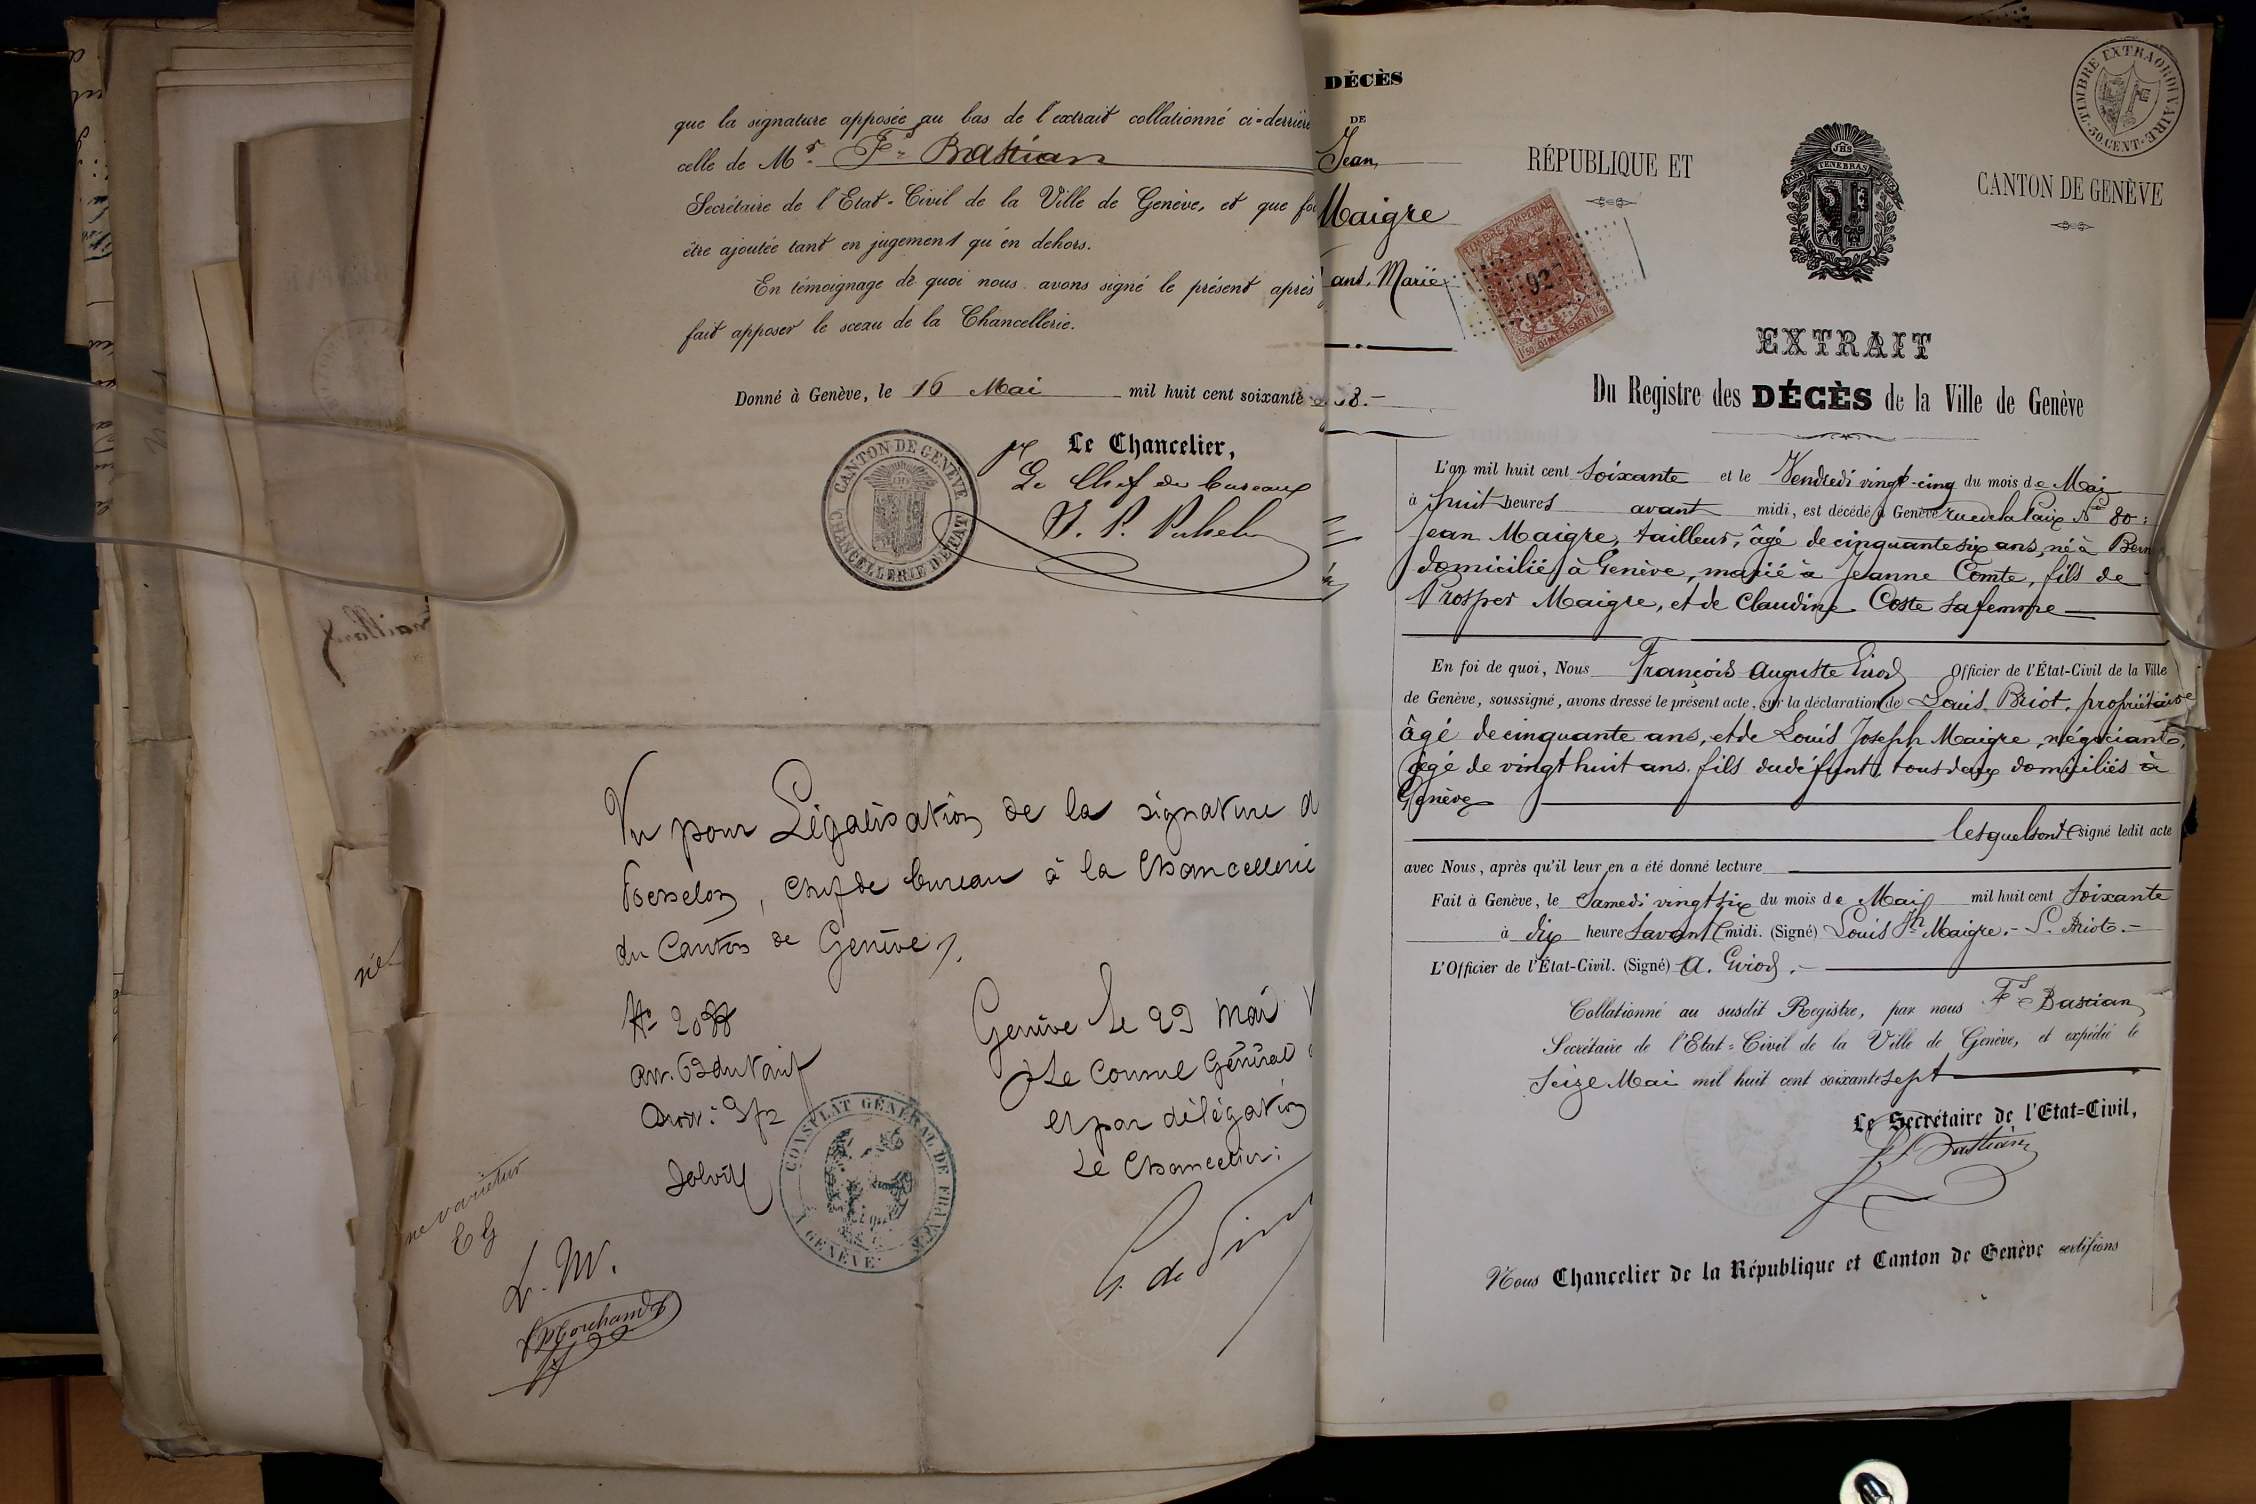 que la signature apposée au bas de l'extrait collationné ci-derrière
celle de Mr. Fs Bastian
Secrétaire de l'Etat-Civil de la Ville de Genève, et que foi
être ajoutée tant en jugement qu'en dehors.
En témoignage de quoi nous avons signé le présent après
fait apposer le sceau de la Chancellerie.
Donné à Genève, le 16 Mai mil huit cent soixante
pr Le Chancelier,
Le Chef de bureau
CANTON DE GENÈVE
CHANCELLERIE D'ETAT
Vu pour Légalisation de la signature d
chef de bureau à la Chancellerie
du Canton de Genève.
Genève le 29 Mai
Le Consul Général
et par délégation
Le Chancelier:
CONSULAT GÉNÉRAL DE FRANCE
A GENÈVE
ne varietur
E G
L. M.
DÉCÈS
DE
Jean
Maigre
ans. Marié
8.-
TIMBRE EXTRAORDINAIRE
50. CENT.
RÉPUBLIQUE ET
CANTON DE GENÈVE
JHS
POST TENEBRAS LUX
TIMBRE IMPERIAL
92
1f50 DIMENSION 1f50
EXTRAIT
Du Registre des DÉCÈS de la Ville de Genève
L'an mil huit cent soixante et le Vendredi vingt-cinq du mois de Mai
à huit heures avant midi, est décédé à Genève rue de la Paix No 80:
Jean Maigre, tailleur, âgé de cinquante six ans, né à
domicilié à Genève, marié à Jeanne Comte, fils de
Prosper Maigre, et de Claudine Coste sa femme
En foi de quoi, Nous François Auguste Girod Officier de l'État-Civil de la Ville
de Genève, soussigné, avons dressé le présent acte, sur la déclaration de Louis Briot, propriétaire
âgé de cinquante ans, et de Louis Joseph Maigre, négociant,
âgé de vingt huit ans. fils du défunt, tous deux domiciliés à
Genève
lesquels ont signé ledit acte
avec Nous, après qu'il leur en a été donné lecture
Fait à Genève, le Samedi vingt six du mois de Mai mil huit cent soixante
à dix heures avant midi. (Signé) Louis Jh Maigre.- L. Briot.-
L'Officier de l'État-Civil. (Signé) A. Girod.-
Collationné au susdit Registre, par nous Fs Bastian
Secrétaire de l'Etat-Civil de la Ville de Genève, et expédié le
Seize Mai mil huit cent soixante sept
Le Secrétaire de l'Etat-Civil,
Fs Bastian
Nous Chancelier de la République et Canton de Genève certifions